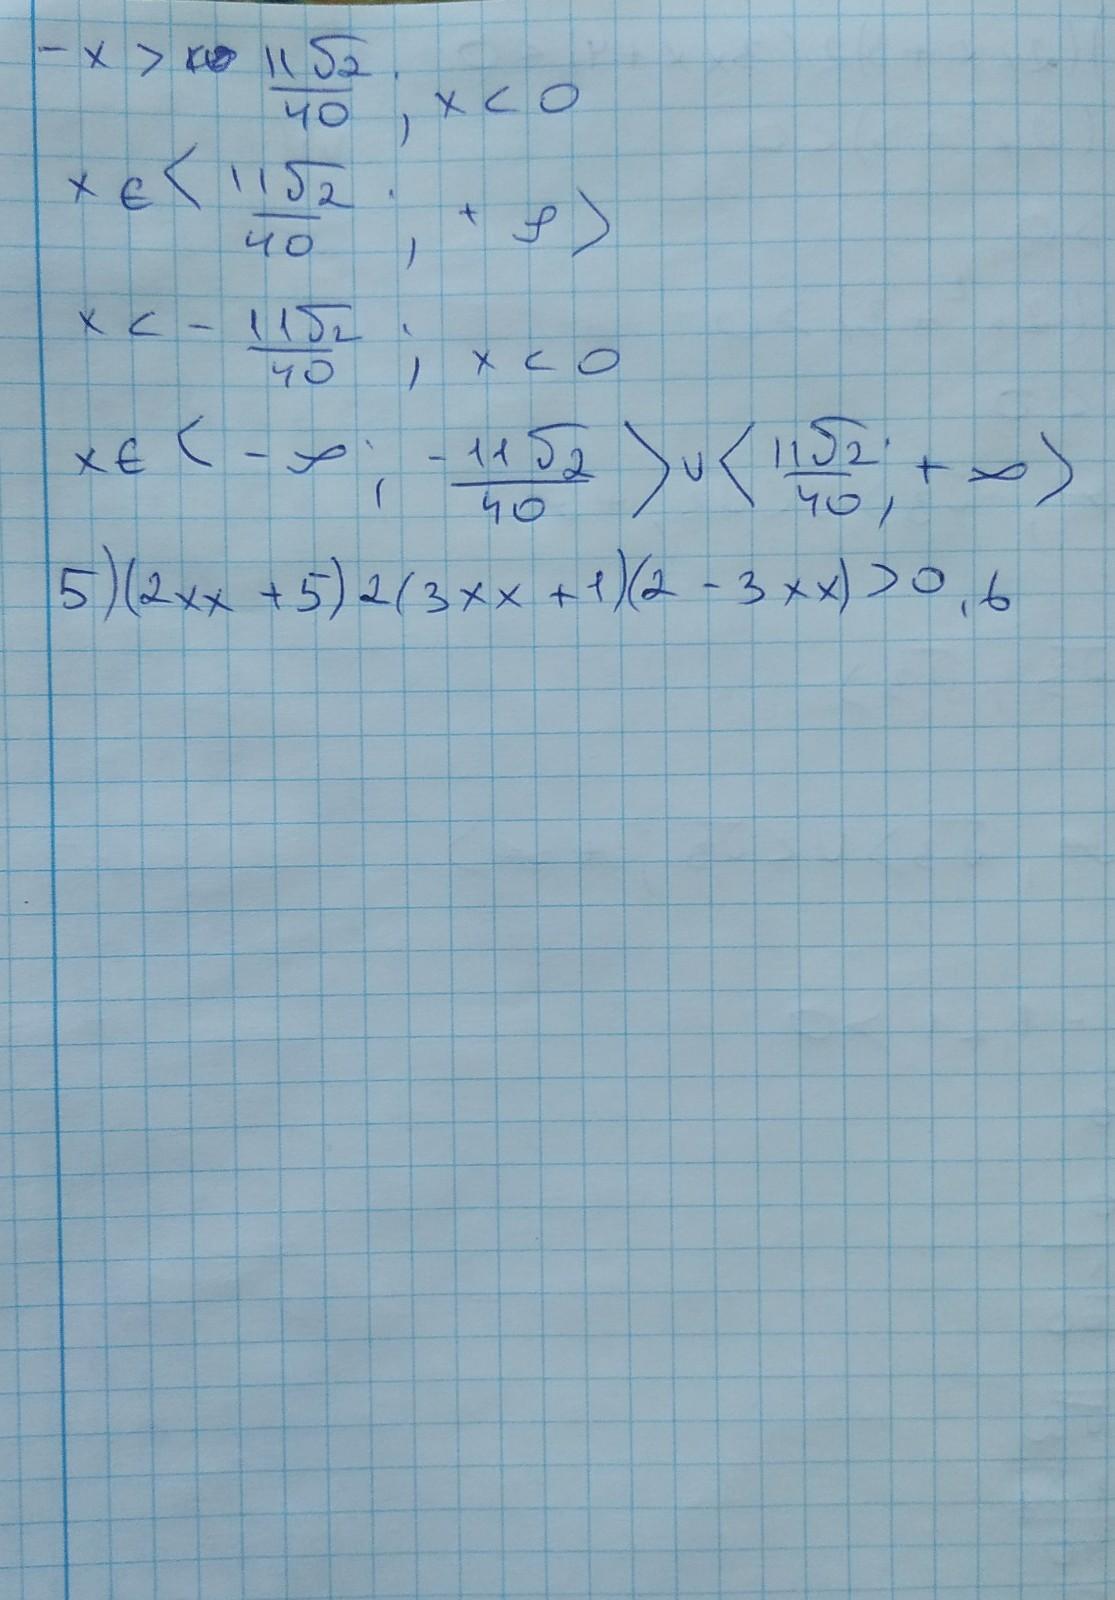 -x > 11√2/40 ; x < 0
x ∈ ⟨ 11√2/40 ; + ∞ ⟩
x < - 11√2/40 ; x < 0
x ∈ ⟨ - ∞ ; - 11√2/40 ⟩ ∪ ⟨ 11√2/40 ; + ∞ ⟩
5) (2xx + 5) 2 (3xx + 1) (2 - 3xx) > 0,6